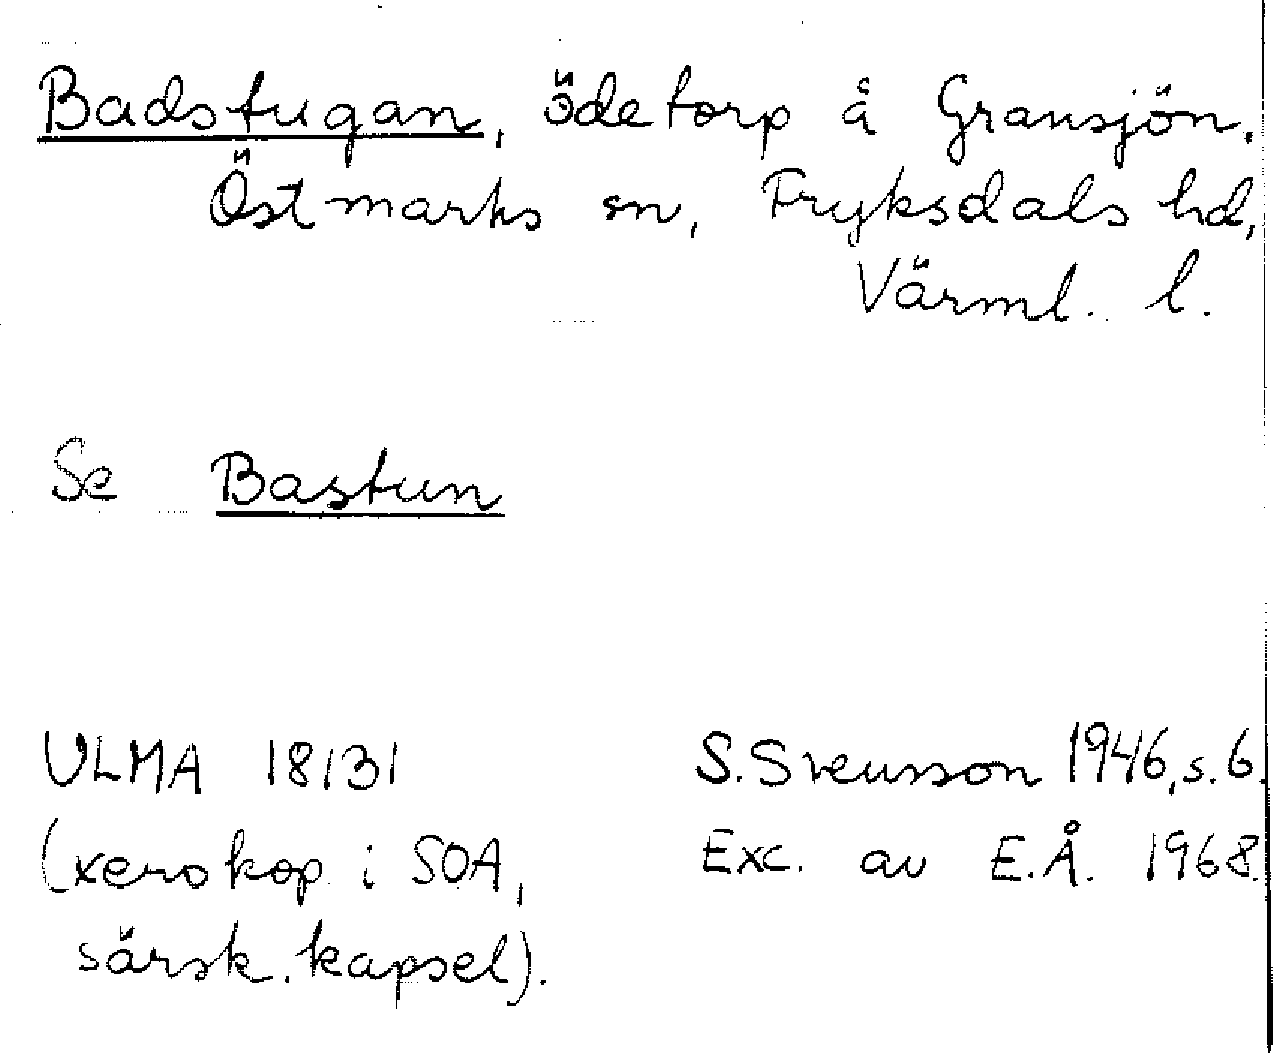 Badstugan, ödetorp å Gransjön,
Östmarks sn, Fryksdals hd,
Värml. l.
Se Bastun
ULMA 18131
(xerokop i SOA,
särsk. kapsel).
S. Svensson 1946, s. 6.
Exc. av E.Å. 1968.